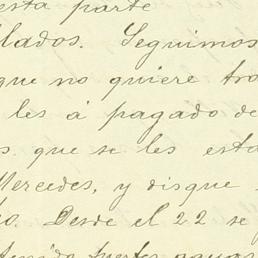 esta parte
llados. Seguimos
que no quiere tra
les á pagado de
s que se les esta
Mercedes, y disque
o. Desde el 22 se
tenido fuertes aguas